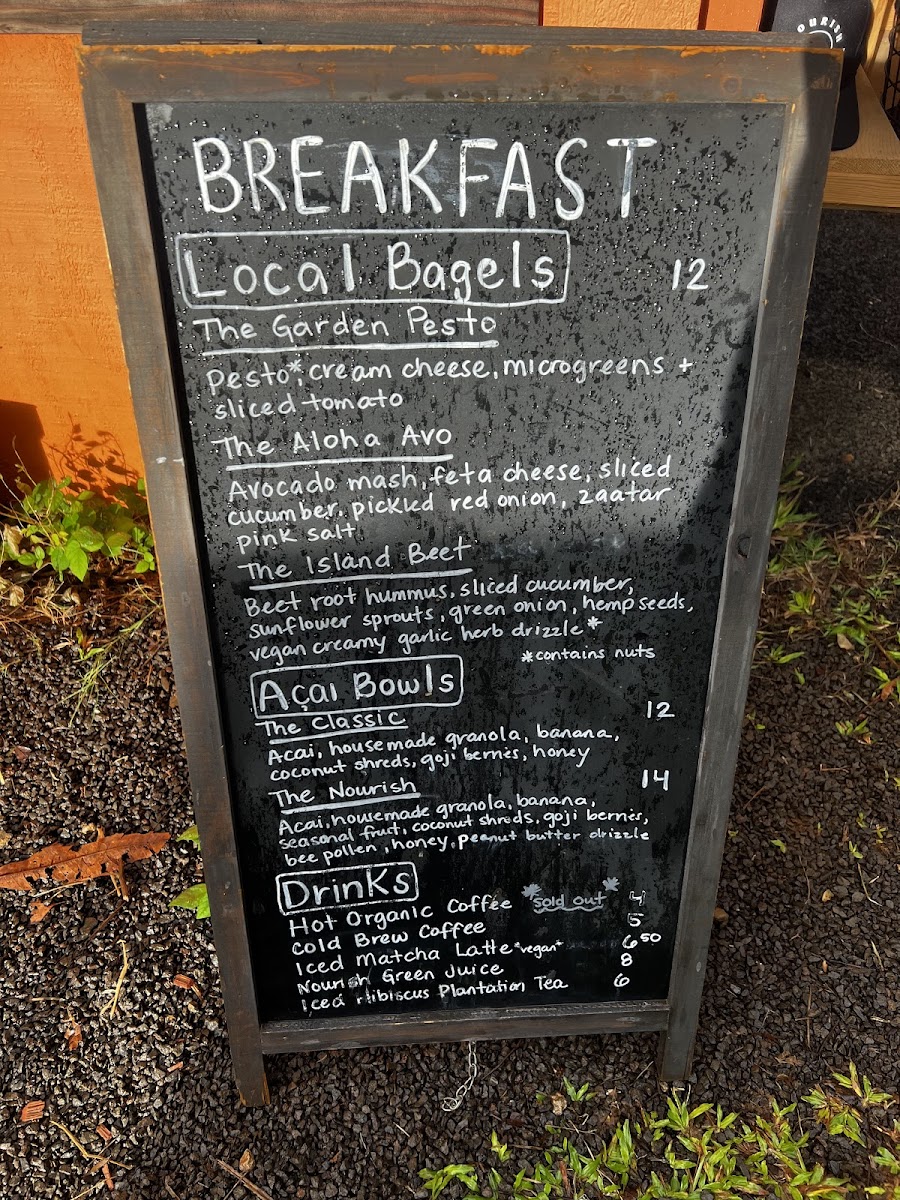 OURISH
BREAKFAST
Local Bagels 12
The Garden Pesto
Pesto*, cream cheese, microgreens +
sliced tomato
The Aloha Avo
Avocado mash, feta cheese, sliced
cucumber, pickled red onion, zaatar
pink salt
The Island Beet
Beet root hummus, sliced cucumber,
sunflower sprouts, green onion, hemp seeds,
vegan creamy garlic herb drizzle*
*contains nuts
Açai Bowls
The Classic 12
Acai, housemade granola, banana,
coconut shreds, goji berries, honey
The Nourish 14
Acai, housemade granola, banana,
seasonal fruit, coconut shreds, goji berries,
bee pollen, honey, peanut butter drizzle
Drinks
Hot Organic Coffee *sold out* 4
Cold Brew Coffee 5
Iced Matcha Latte *vegan* 6 50
Nourish Green Juice 8
Iced Hibiscus Plantation Tea 6